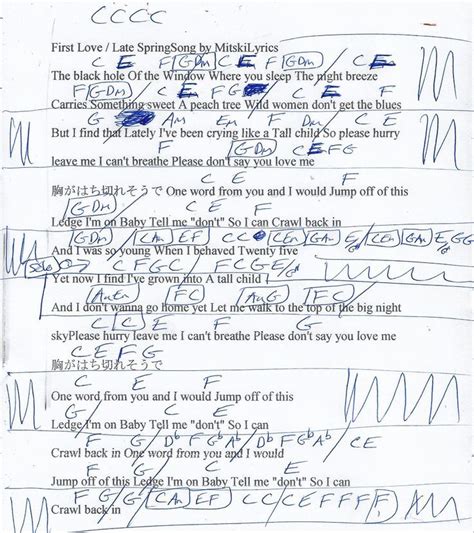 C C C C
First Love / Late SpringSong by MitskiLyrics
C E F G Dm C E F G Dm C E
The black hole Of the Window Where you sleep The night breeze
F G Dm C E F G Dm C E
Carries Something sweet A peach tree Wild women don't get the blues
G Am Em F Dm C E
But I find that Lately I've been crying like a Tall child So please hurry
F G Dm C E F G
leave me I can't breathe Please don't say you love me
C E F
胸がはち切れそうで One word from you and I would Jump off of this
G Dm
Ledge I'm on Baby Tell me "don't" So I can Crawl back in
G Dm / C Am E F C C
And I was so young When I behaved Twenty five
Solo C F G C / F C G E
Yet now I find I've grown into A tall child
F C F C
And I don't wanna go home yet Let me walk to the top of the big night
C C E F
skyPlease hurry leave me I can't breathe Please don't say you love me
C E F G
胸がはち切れそうで
C E F
One word from you and I would Jump off of this
G C E
Ledge I'm on Baby Tell me "don't" So I can
F G / Db F Gb Ab / Db F Gb Ab / C E
Crawl back in One word from you and I would
F G C E
Jump off of this Ledge I'm on Baby Tell me "don't" So I can
F G / G / C Am E F C C / C E F F F F
Crawl back in